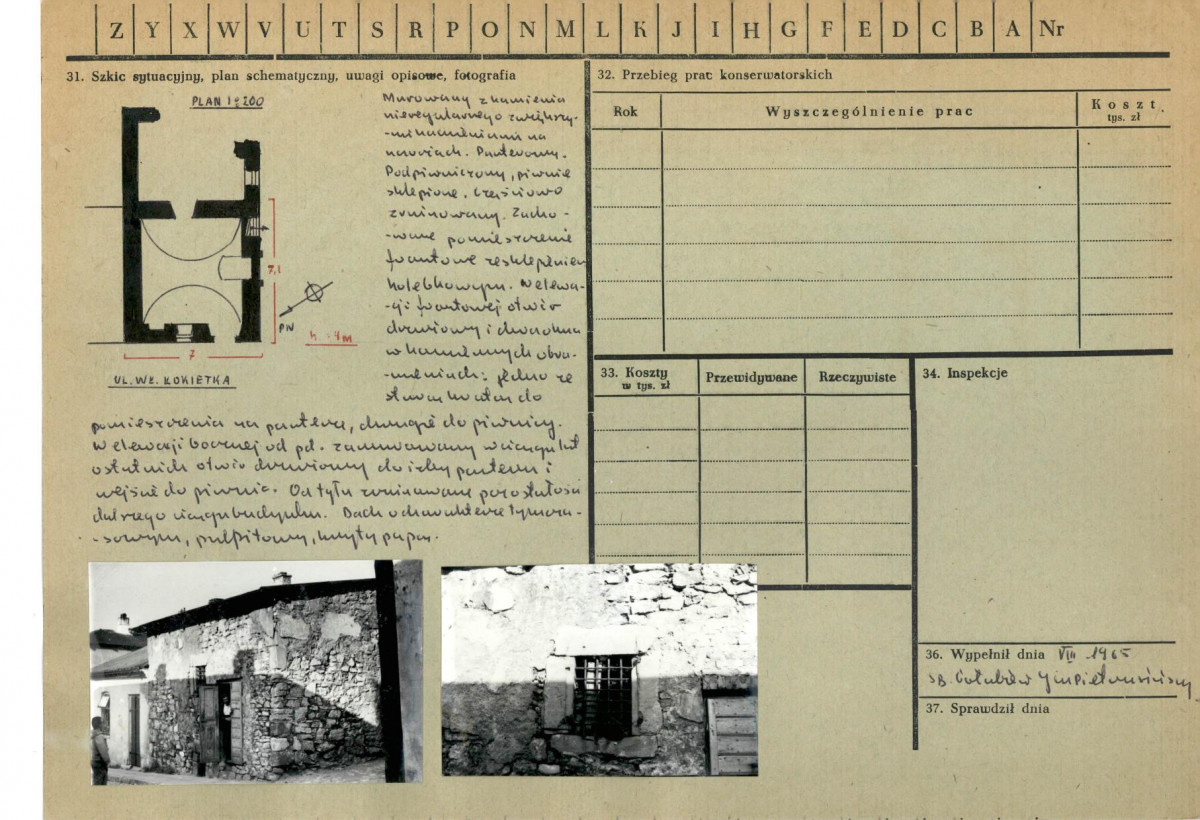 Z Y X W V U T S R P O N M L K J I H G F E D C B A Nr
31. Szkic sytuacyjny, plan schematyczny, uwagi opisowe, fotografia
PLAN 1:200
7,1
PN
h = 4m
7
UL. WŁ. ŁOKIETKA
Murowany z kamienia
nieregularnego z większy-
-mi kamieniami na
narożach. Parterowy.
Podpiwniczony, piwnice
sklepione. Częściowo
zrujnowany. Zacho-
-wane pomieszczenie
frontowe ze sklepieniem
kolebkowym. W elewa-
-cji frontowej otwór
drzwiowy i dwa okna
w kamiennych obra-
-mieniach: jedno ze
do
pomieszczenia na parterze, drugie do piwnicy.
W elewacji bocznej od pd. zamurowany w ciągu lat
ostatnich otwór drzwiowy do izby parteru i
wejście do piwnic. Od tyłu zrujnowane pozostałości
dalszego ciągu budynku. Dach o charakterze tymcza-
-sowym, pulpitowy, kryty papą.
32. Przebieg prac konserwatorskich
Rok Wyszczególnienie prac Koszt
tys. zł
33. Koszty
w tys. zł
Przewidywane Rzeczywiste
34. Inspekcje
36. Wypełnił dnia VIII 1965
37. Sprawdził dnia